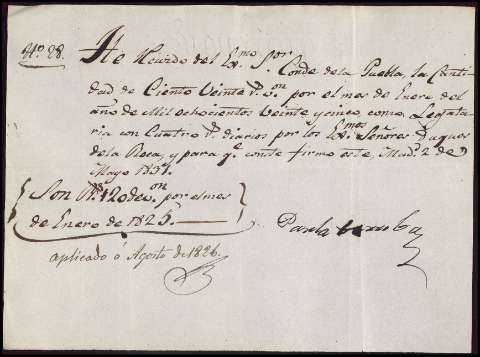 No. 28.
He Recivido del Exmo. Sor. Conde de la Puebla, la Canti
dad de Ciento Veinte rs. von. por el mes de Enero del
año de Mil ochocientos Veinte y cinco como Legata
ria con Cuatro rs. diarios por los Exmos. Señores Duques
de la Roca, y para qe. conste firmo este, Madd. 2 de
Mayo 1831.
Son Rs. 120 de von. por el mes
de Enero de 1825.
aplicado á Agosto de 1826.
Paula